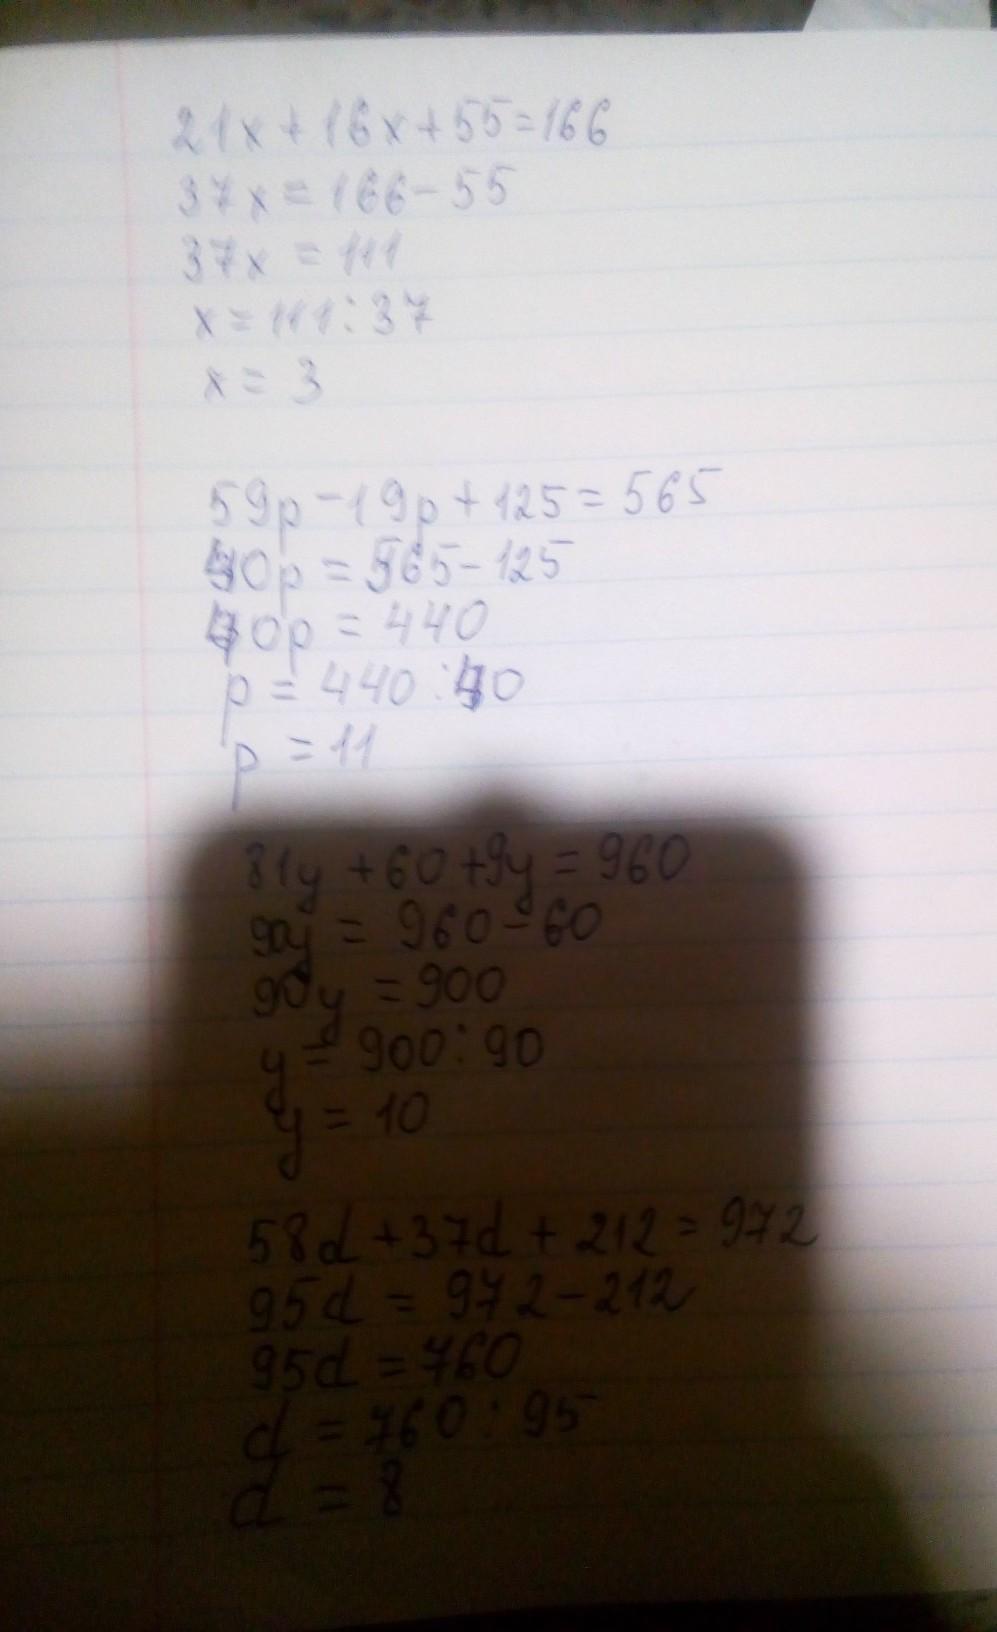 21x+16x+55=166
37x=166-55
37x=111
x=111:37
x=3
59p-19p+125=565
40p=565-125
40p=440
p=440:40
p=11
81y+60+9y=960
90y=960-60
90y=900
y=900:90
y=10
58d+37d+212=972
95d=972-212
95d=760
d=760:95
d=8